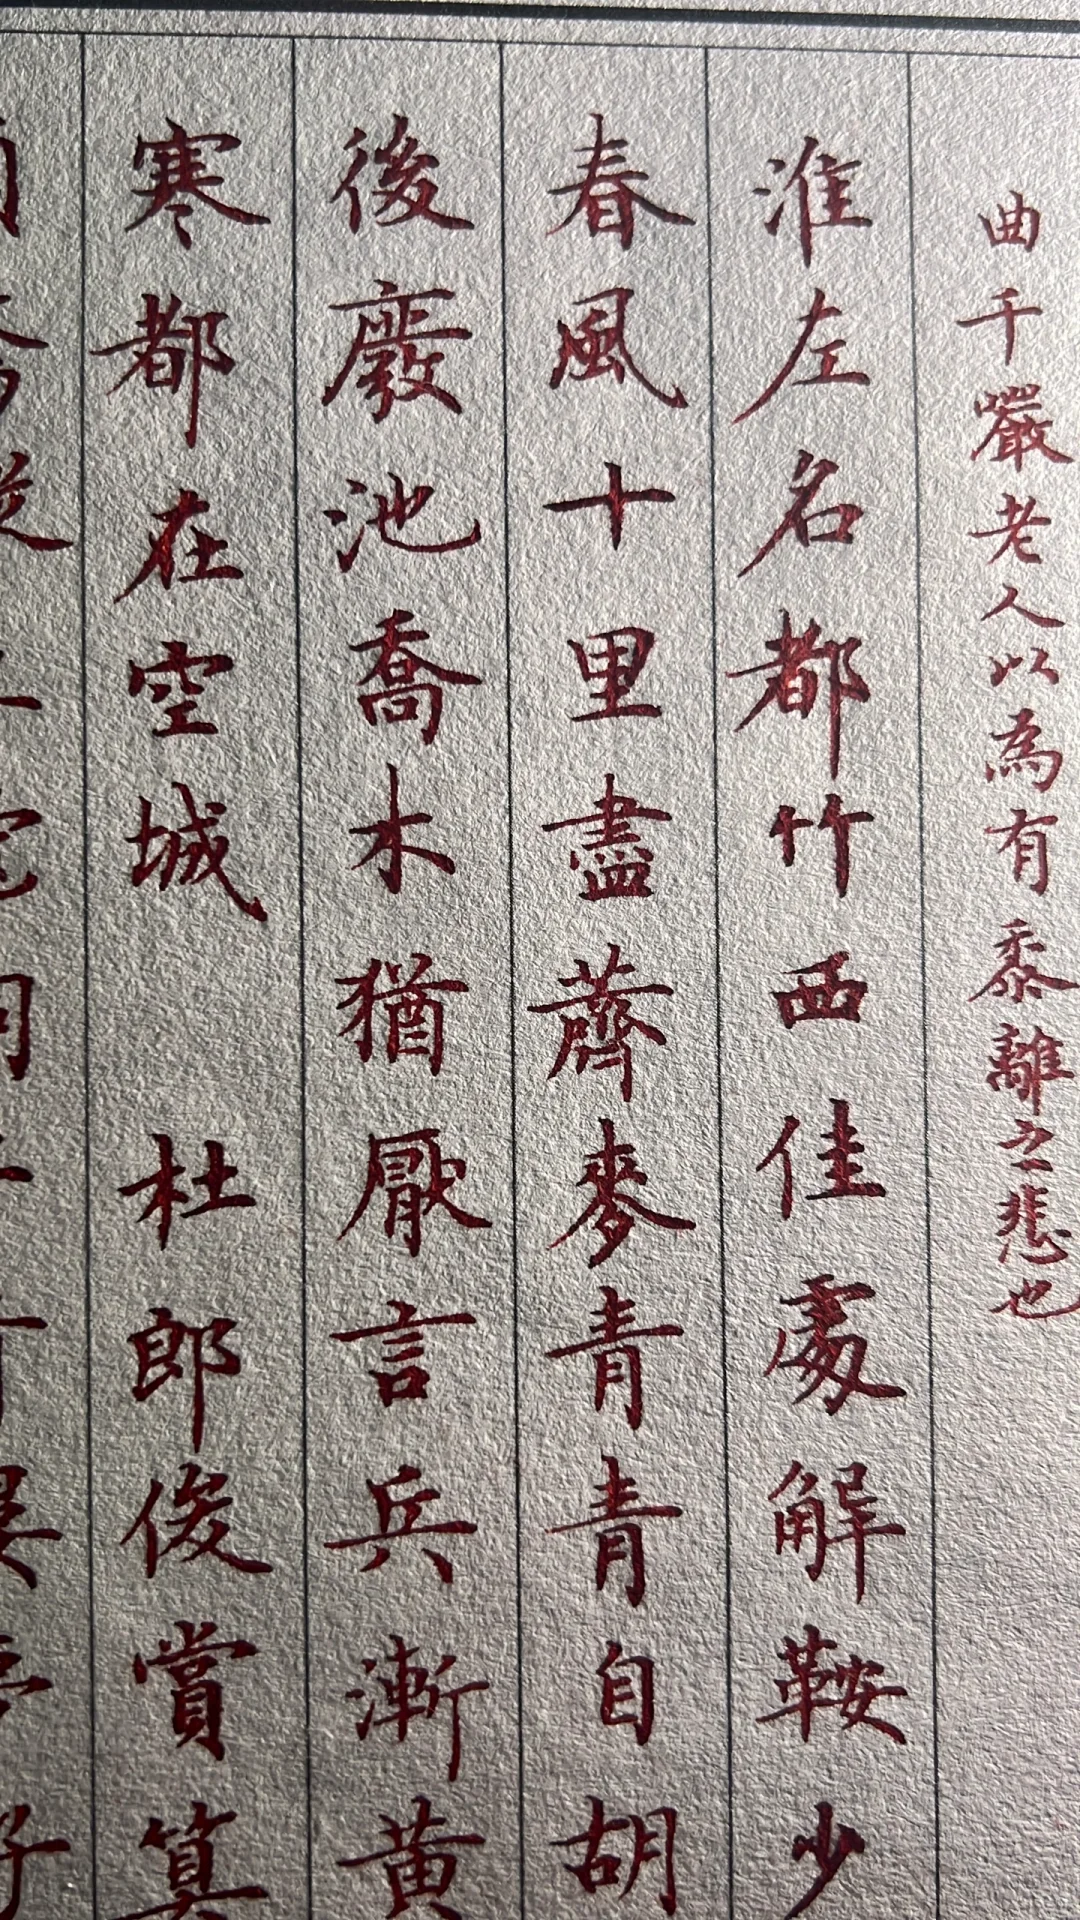 曲千巖老人以為有黍離之悲也
淮左名都竹西佳處解鞍少
春風十里盡薺麥青青自胡
後廢池喬木猶厭言兵漸黃
寒都在空城 杜郎俊賞算